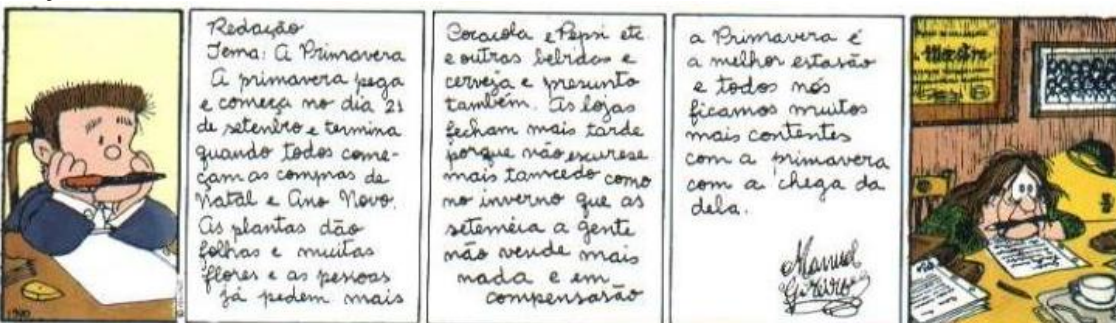 Redação
Tema: A Primavera
A primavera pega
e começa no dia 21
de setenbro e termina
quando todos come-
çam as compras de
Natal e Ano Novo.
As plantas dão
folhas e muitas
flores e as pessoas
já pedem mais
Cocacola e Pepsi etc.
e outras bebidas e
cerveja e presunto
também. As lojas
fecham mais tarde
porque não escurese
mais tamcedo como
no inverno que as
seteméia a gente
não vende mais
nada e em
compensasão
a Primavera é
a melhor estasão
e todos nós
ficamos muitos
mais contentes
com a primavera
com a chega da
dela.
Manuel